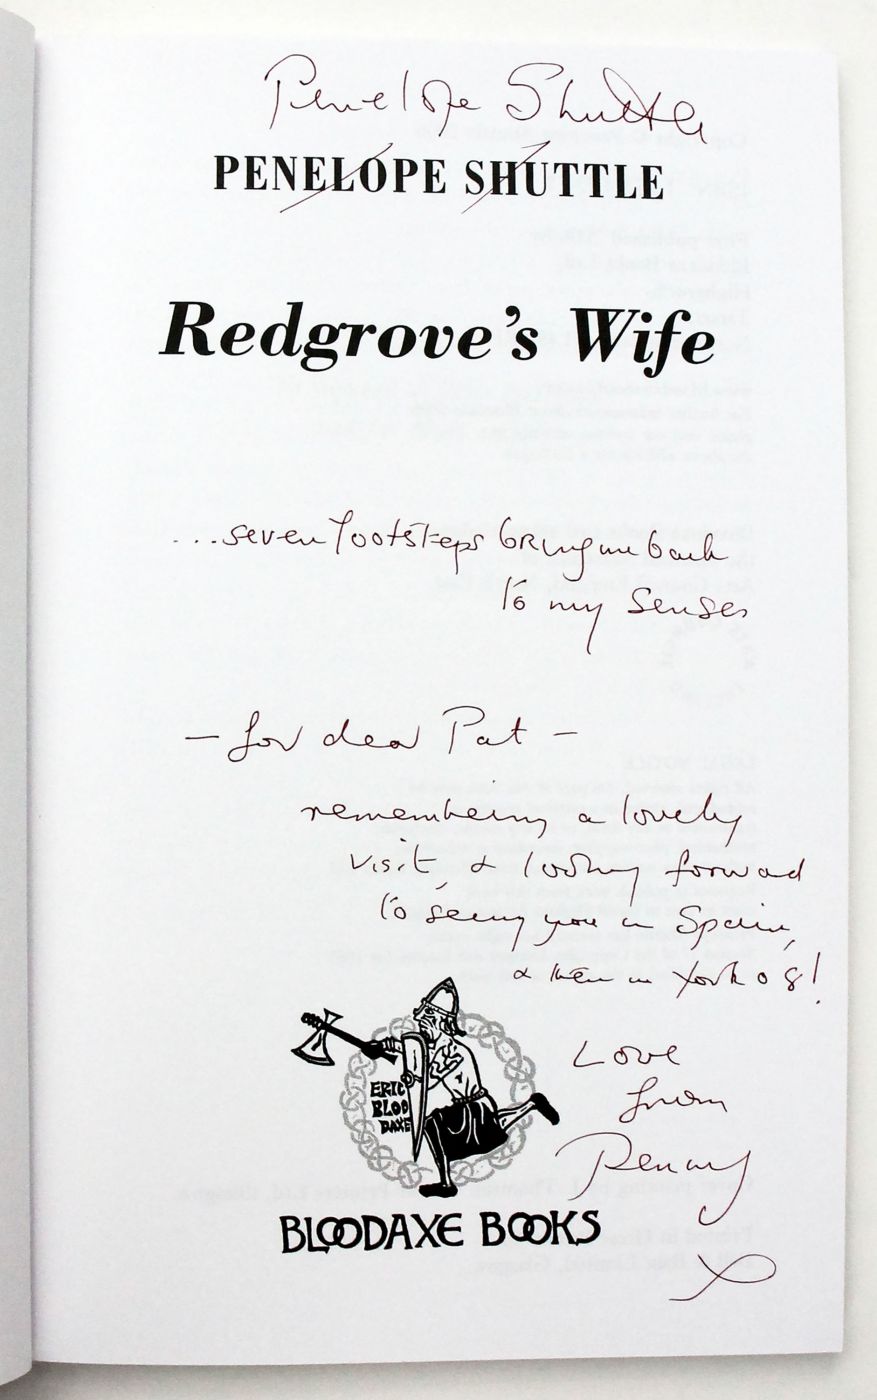 Penelope Shuttle
PENELOPE SHUTTLE
Redgrove's Wife
...seven footsteps bring me back
to my senses
– for dear Pat –
remembering a lovely
visit, & looking forward
to seeing you in Spain,
& then in York 08!
Love
from
Penny
x
ERIC
BLOO
DAXE
BLOODAXE BOOKS